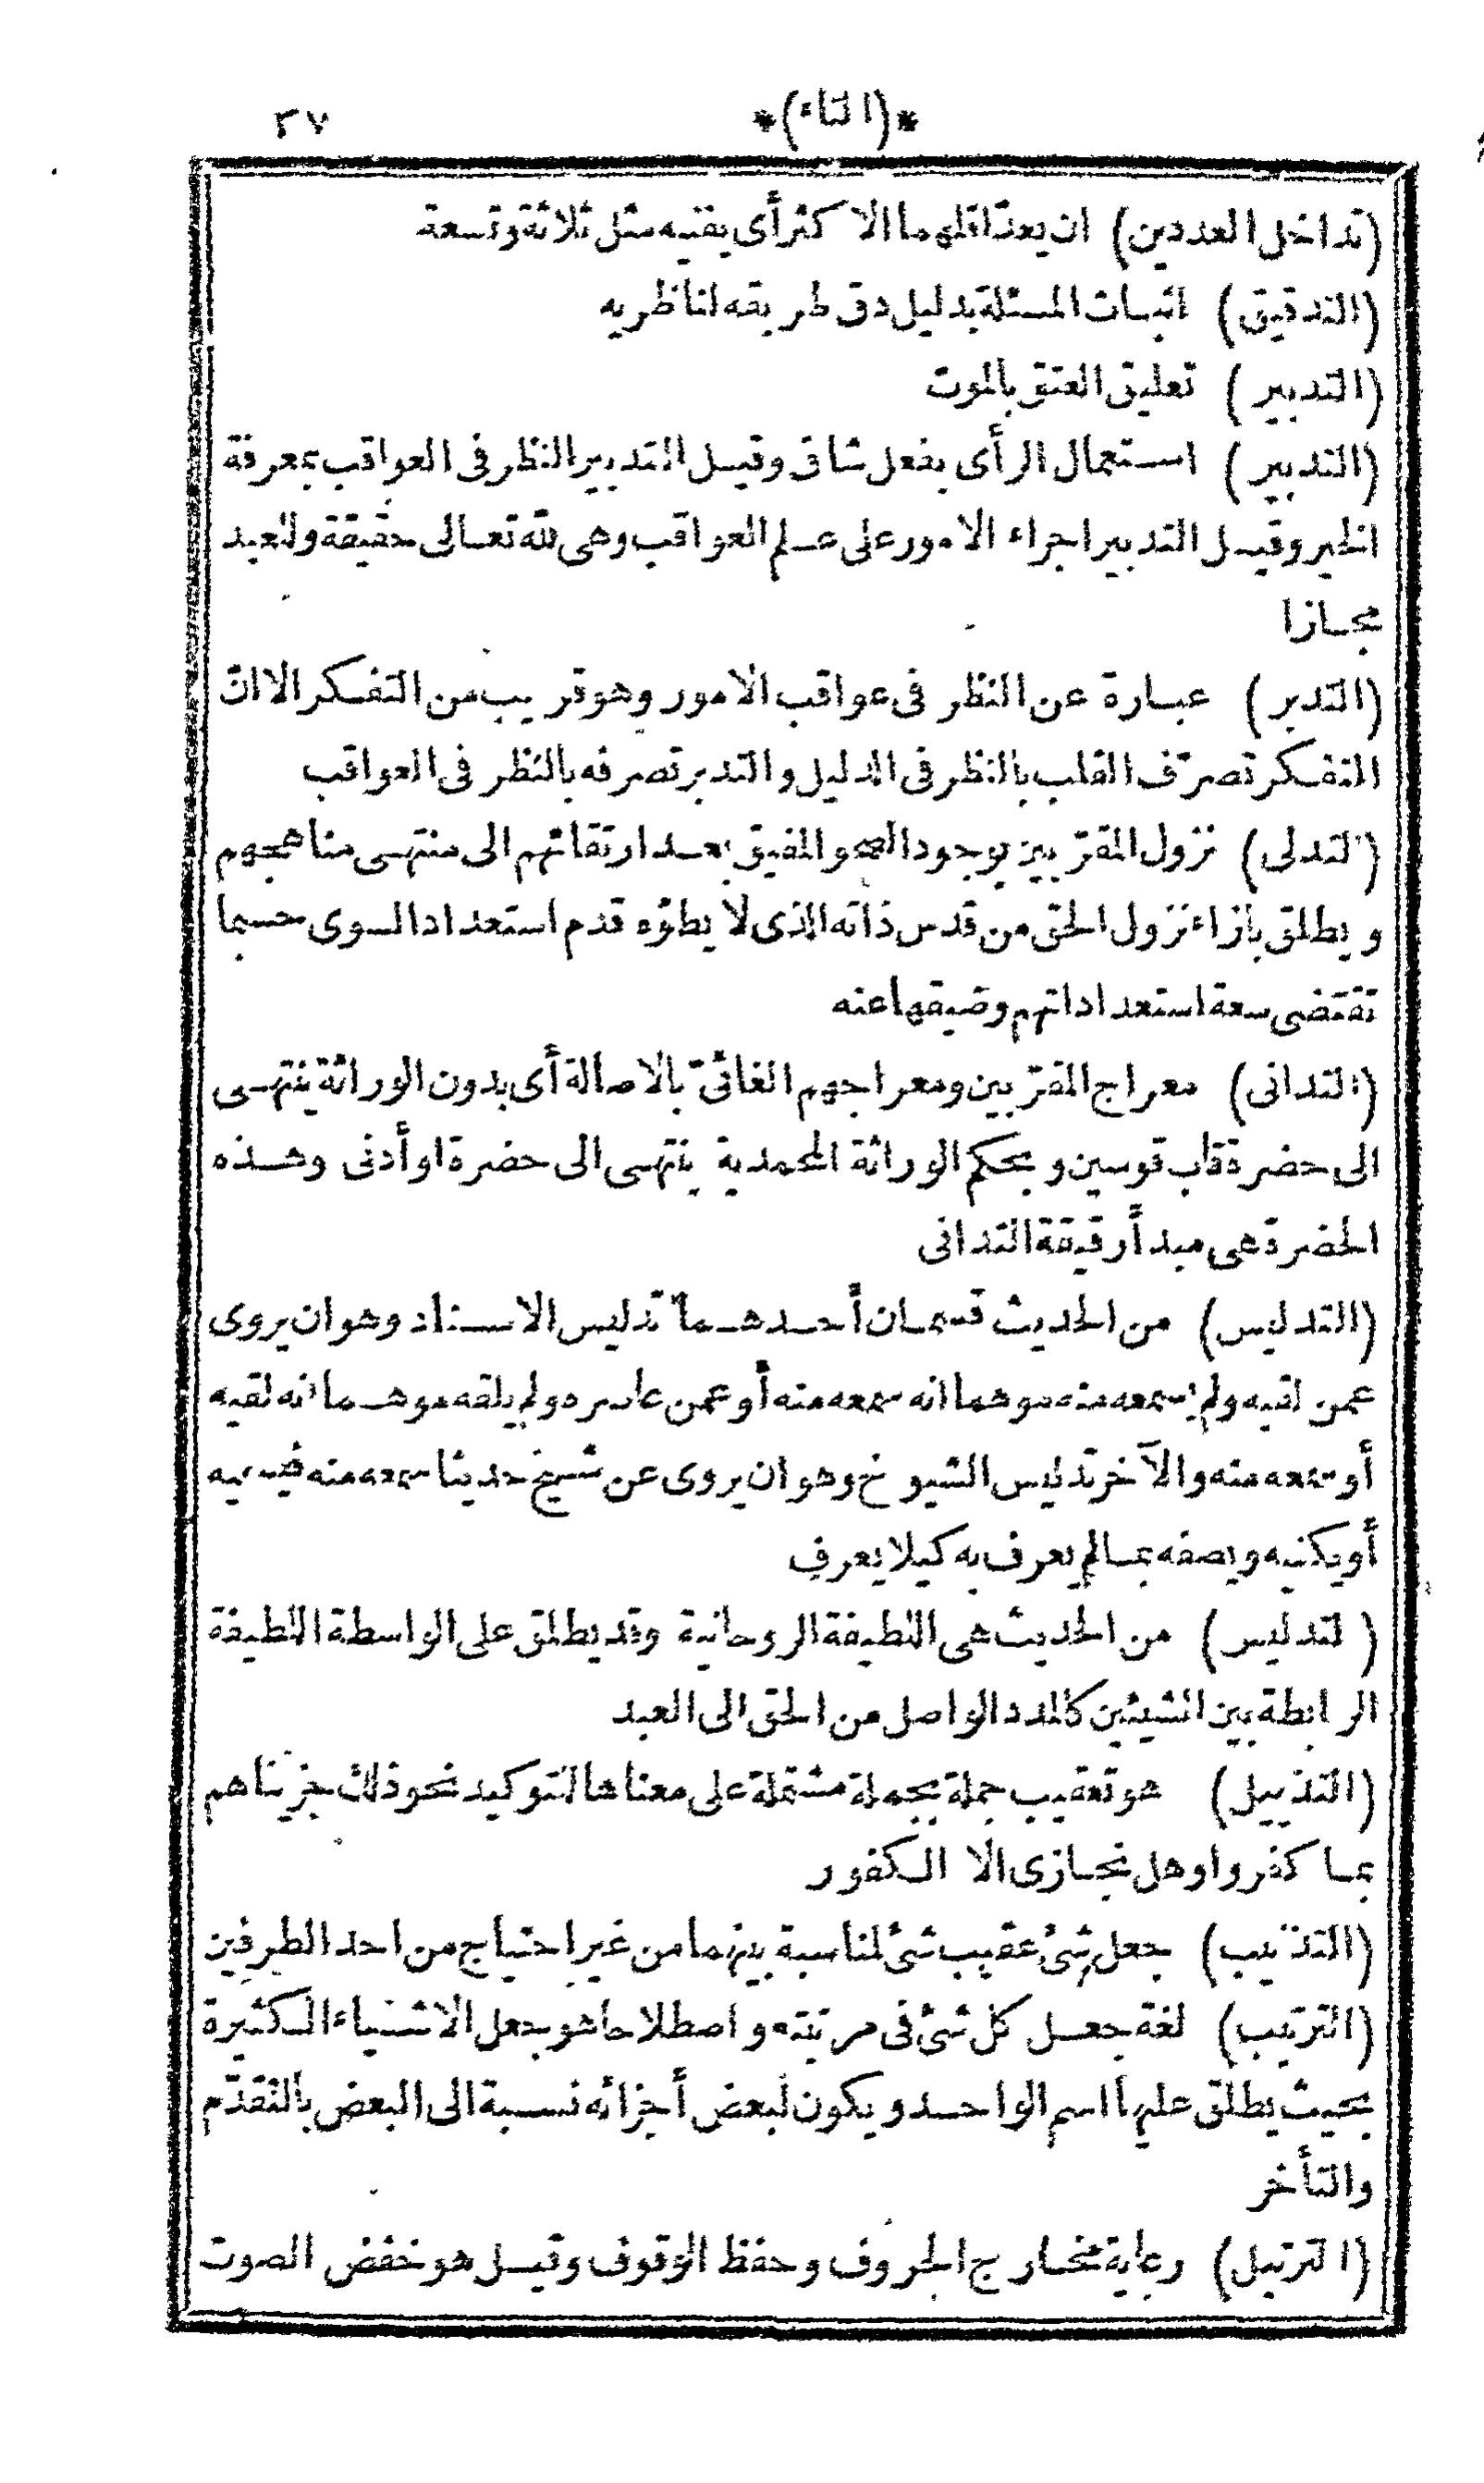 *(التاء)* ٣٧
(تداخل العددين) ان يعدّ اقلهما الاكثر أى يفنيه مثل ثلاثة وتسعة
(التدقيق) اثبات المسئلة بدليل دق طريقه لناظريه
(التدبير) تعليق العتق بالموت
(التدبير) استعمال الرأى بفعل شاق وقيل التدبير النظر فى العواقب بمعرفة
الخير وقيل التدبير اجراء الامور على علم العواقب وهى لله تعالى حقيقة وللعبد
مجازا
(التدبر) عبارة عن النظر فى عواقب الامور وهو قريب من التفكر الا انّ
التفكر تصرّف القلب بالنظر فى الدليل والتدبر تصرفه بالنظر فى العواقب
(التدلى) نزول المقرّبين بوجود الصحو المفيق بعد ارتقائهم الى منتهى مناهجهم
ويطلق بازاء نزول الحق من قدس ذاته الذى لا يطؤه قدم استعداد السوى حسبما
تقتضى سعة استعداداتهم وضيقها عنه
(التدانى) معراج المقرّبين ومعراجهم الغائىّ بالاصالة أى بدون الوراثة ينتهى
الى حضرة قاب قوسين وبحكم الوراثة المحمدية ينتهى الى حضرة او أدنى وهذه
الحضرة هى مبدأ رقيقة التدانى
(التدليس) من الحديث قسمان أحدهما تدليس الاسناد وهو ان يروى
عمن لقيه ولم يسمعه منه موهما انه سمعه منه أو عمن عاصره ولم يلقه موهما انه لقيه
أو سمعه منه والآخر تدليس الشيوخ وهو ان يروى عن شيخ حديثا سمعه منه فيسميه
أو يكنيه ويصفه بما لم يعرف به كيلا يعرف
(لتدليس) من الحديث هى اللطيفة الروحانية وقد يطلق على الواسطة اللطيفة
الرابطة بين الشيئين كالمدد الواصل من الحق الى العبد
(التذييل) هو تعقيب جملة بجملة مشتملة على معناها للتوكيد نحو ذلك جزيناهم
بما كفروا وهل نجازى الا الكفور
(التذنيب) جعل شئ عقيب شئ لمناسبة بينهما من غير احتياج من احد الطرفين
(الترتيب) لغة جعل كل شئ فى مرتبته واصطلاحا هو جعل الاشياء الكثيرة
بحيث يطلق عليها اسم الواحد ويكون لبعض أجزائه نسبة الى البعض بالتقدّم
والتأخر
(الترتيل) رعاية مخارج الحروف وحفظ الوقوف وقيل هو خفض الصوت